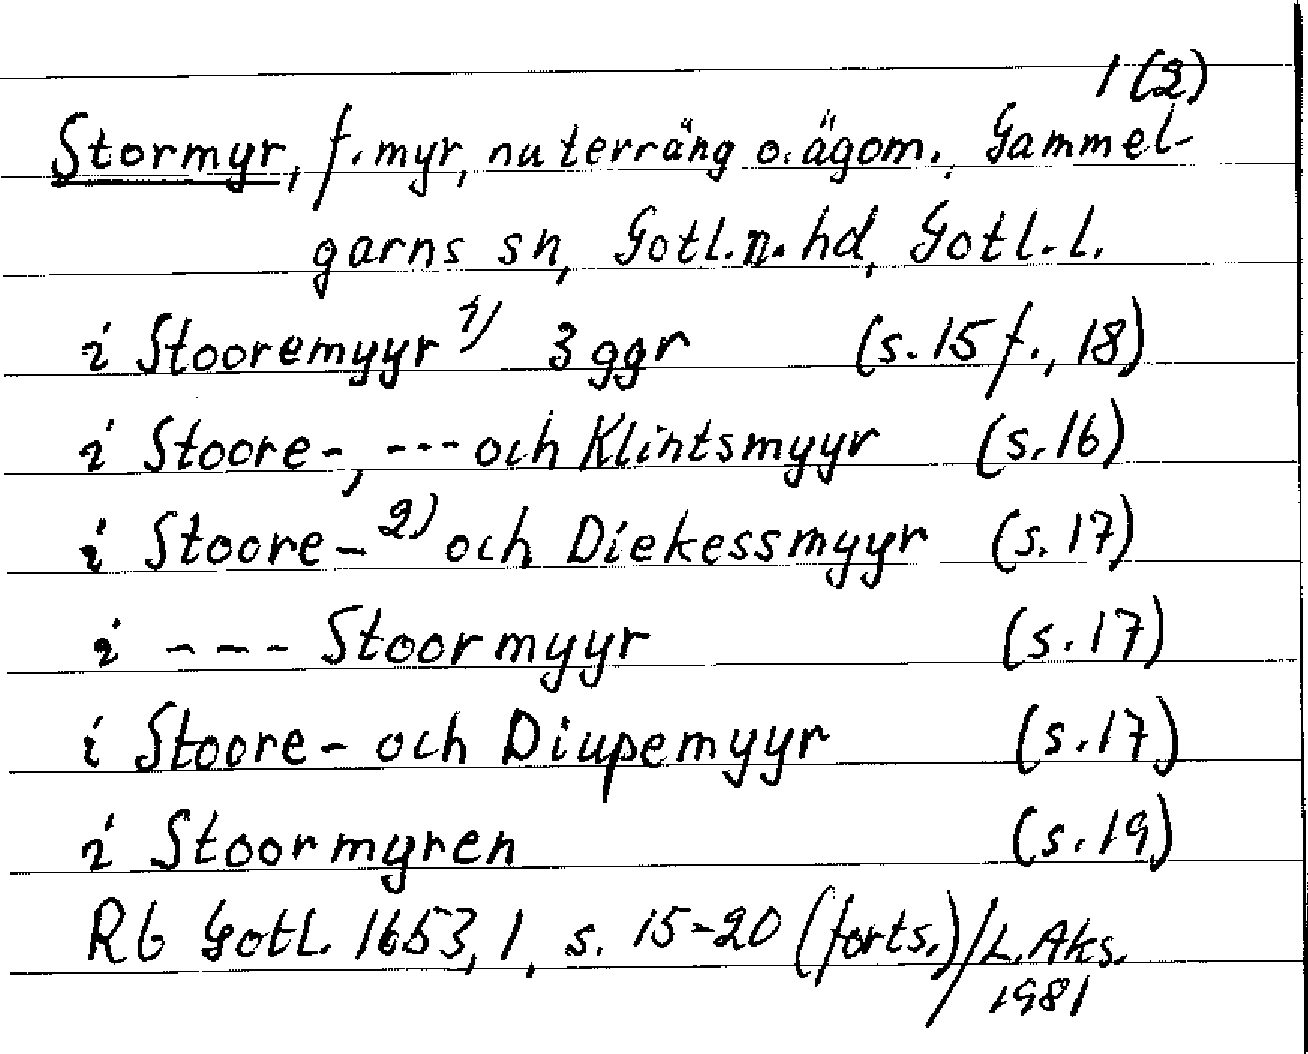 1 (2)
Stormyr, f. myr, nu terräng o. ägom., Gammel-
garns sn, Gotl. n. hd, Gotl. l.
i Stooremyyr 1) 3 ggr (s. 15 f., 18)
i Stoore-, --- och Klintsmyyr (s. 16)
i Stoore- 2) och Diekessmyyr (s. 17)
i --- Stoormyyr (s. 17)
i Stoore- och Diupemyyr (s. 17)
i Stoormyren (s. 19)
Rb Gotl. 1653, 1, s. 15-20 (forts.) / L. Aks.
1981